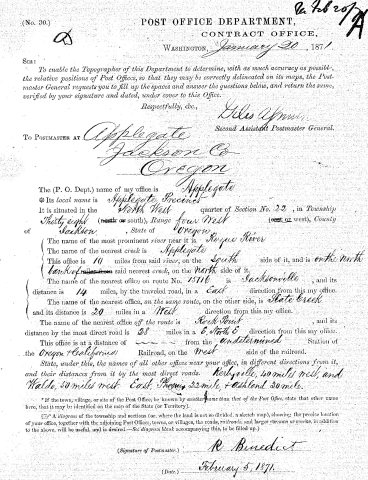 (No. 20.)
POST OFFICE DEPARTMENT,
CONTRACT OFFICE,
WASHINGTON, January 20, 1871
SIR:
To enable the Topographer of this Department to determine, with as much accuracy as possible,
the relative positions of Post Offices, so that they may be correctly delineated on its maps, the Post-
master General requests you to fill up the spaces and answer the questions below, and return the same,
verified by your signature and dated, under cover to this Office.
Respectfully, &c.,
Second Assistant Postmaster General.
TO POSTMASTER AT Applegate
Jackson Co
Oregon
The (P. O. Dept.) name of my office is Applegate
Its local name is Applegate Precinct
It is situated in the North West quarter of Section No. 22, in Township
Thirty eight (north or south), Range four West (east or west), County
of Jackson, State of Oregon
The name of the most prominent river near it is Rogue River
The name of the nearest creek is Applegate
This office is 10 miles from said river, on the South side of it, and is on the North
bank of miles from said nearest creek, on the North side of it.
The name of the nearest office on route No. 15116 is Jacksonville, and its
distance is 14 miles, by the traveled road, in a East direction from this my office.
The name of the nearest office, on the same route, on the other side, is Slate Creek
and its distance is 20 miles in a West direction from this my office.
The name of the nearest office off the route is Rock Point, and its
distance by the most direct road is 28 miles in a E. North E direction from this my office.
This office is at a distance of undetermined Station of
the Oregon & California Railroad, on the West side of the railroad.
State, under this, the names of all other offices near your office, in different directions from it,
and their distances from it by the most direct roads. Kerbyville, 40 miles west, and
Waldo, 50 miles west East, Phoenix 22 mile, & Ashland 20 mile.
If the town, village, or site of the Post Office, be known by another name than that of the Post Office, state that other name
here, that it may be identified on the map of the State (or Territory).
A diagram of the township and sections (or, where the land is not so divided, a sketch map), showing the precise location
of your office, together with the adjoining Post Offices, towns, or villages, the roads, railroads, and larger streams or creeks, in addition
to the above, will be useful, and is desired.
(Signature of Postmaster.) R Benedict
(Date.) February 5, 1871.